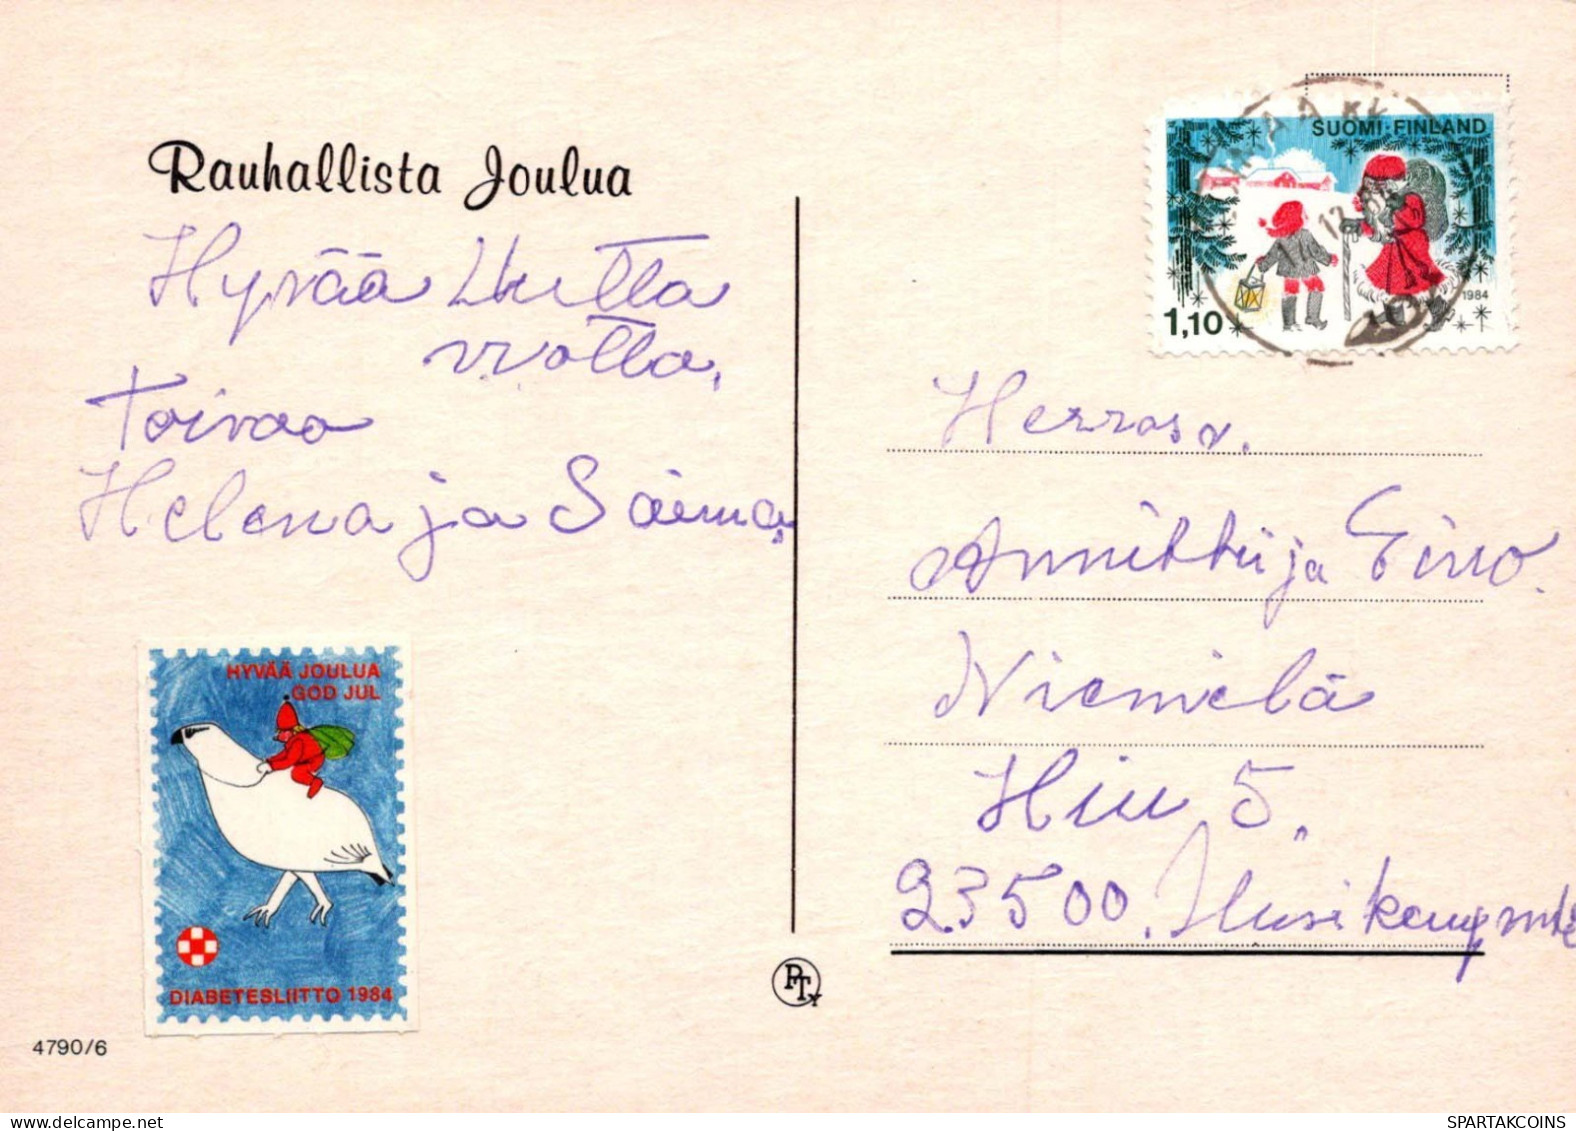 Rauhallista Joulua
Hyvää Uutta
vuotta.
Toivoo
Helena ja Saima
HYVÄÄ JOULUA
GOD JUL
DIABETESLIITTO 1984
4790/6
PTy
SUOMI-FINLAND
1984
1,10
Herrasv.
Annikki ja Eino.
Niemelä
Hiu 5.
23500. Uusikaupunki
SPARTAKCOINS